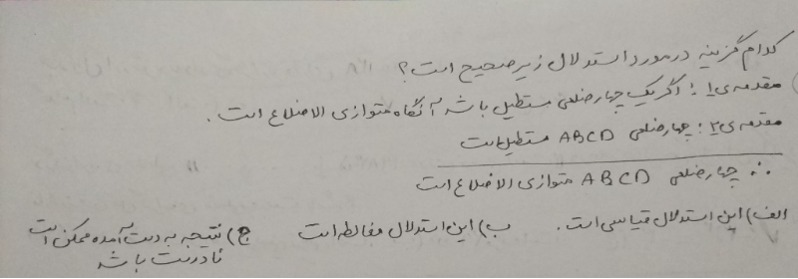 کدام گزینه در مورد استدلال زیر صحیح است؟
مقدمه ی ۱: اگر یک چهارضلعی مستطیل باشد آنگاه متوازی الاضلاع است.
مقدمه ی ۲: چهارضلعی ABCD مستطیل است
∴ چهارضلعی ABCD متوازی الاضلاع است
الف) این استدلال قیاسی است. ب) این استدلال مغالطه است ج) نتیجه به دست آمده ممکن است
نادرست باشد